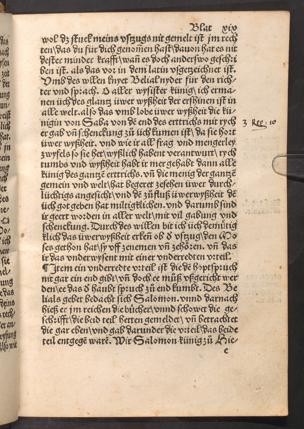 Blat xix
wol dz stuck meins vszugs nit gemelt ist jm rech
ten\das du für dich genomen hast\dauon hat es nit
dester minder krafft\wañ es doch anderswo geschri
ben ist. als das vor in dem latin vßgezeichnet ist.
Vmb des willen knyet Belial nyder für den rich
ter vnd sprach. O aller wysister künig\ich erma
nen üch des glantz üwer wyßheit der erschinen ist in
alle welt.also das vmb lobe üwer wyßheit die kü
nigin von Saba von de end des ertrichs mit rych
er gab vñ schenckung zu üch kumen ist\da sie hort
üwer wyßheit. vnd wie ir all frag vnd mengerley
zwyfels so sie het\wyßlich habent verantwurt\rych
tumbs vnd wyßheit habt ir mer gehabt dann alle
künig des gantzē erttrichs. vñ die menig der gantzē
gemein vnd welt\hat begeret zesehen üwer durch
lüchtigs angesicht\vnd de zufluß üwerwyßheit de
üch got geben hat miltigklichen. vnd darumb sind
ir geert worden in aller welt\mit vil gabung vnd
schenckung. Durch des willen bit ich üch demütig
klich das üwerwyßheit erken ob d vszug\den Mo
ses gethon hat\sy vff zenemen vñ zehōren. vñ das
ir das vnderwysent mit einer vnderredten vrteil.
¶ Item ein vnderredte vrteil ist die de hoptspruch
nit gar ein end gibt\vñ doch ee müß vßgericht wer
den\ee das d haubt spruch zu end kumbt. Des Be
lials geber bedacht sich Salomon. vnnd darnach
hieß er im reichen die bücher\vnnd schowet die ge
schrifft\die beid teil hetten gemeldet\ vñ betrachtet
die gar eben\vnd gab darunder die vrteil\das beide
teil entgegē warē. Wir Salomon künig zu Hie-
c
3 Reg. 10